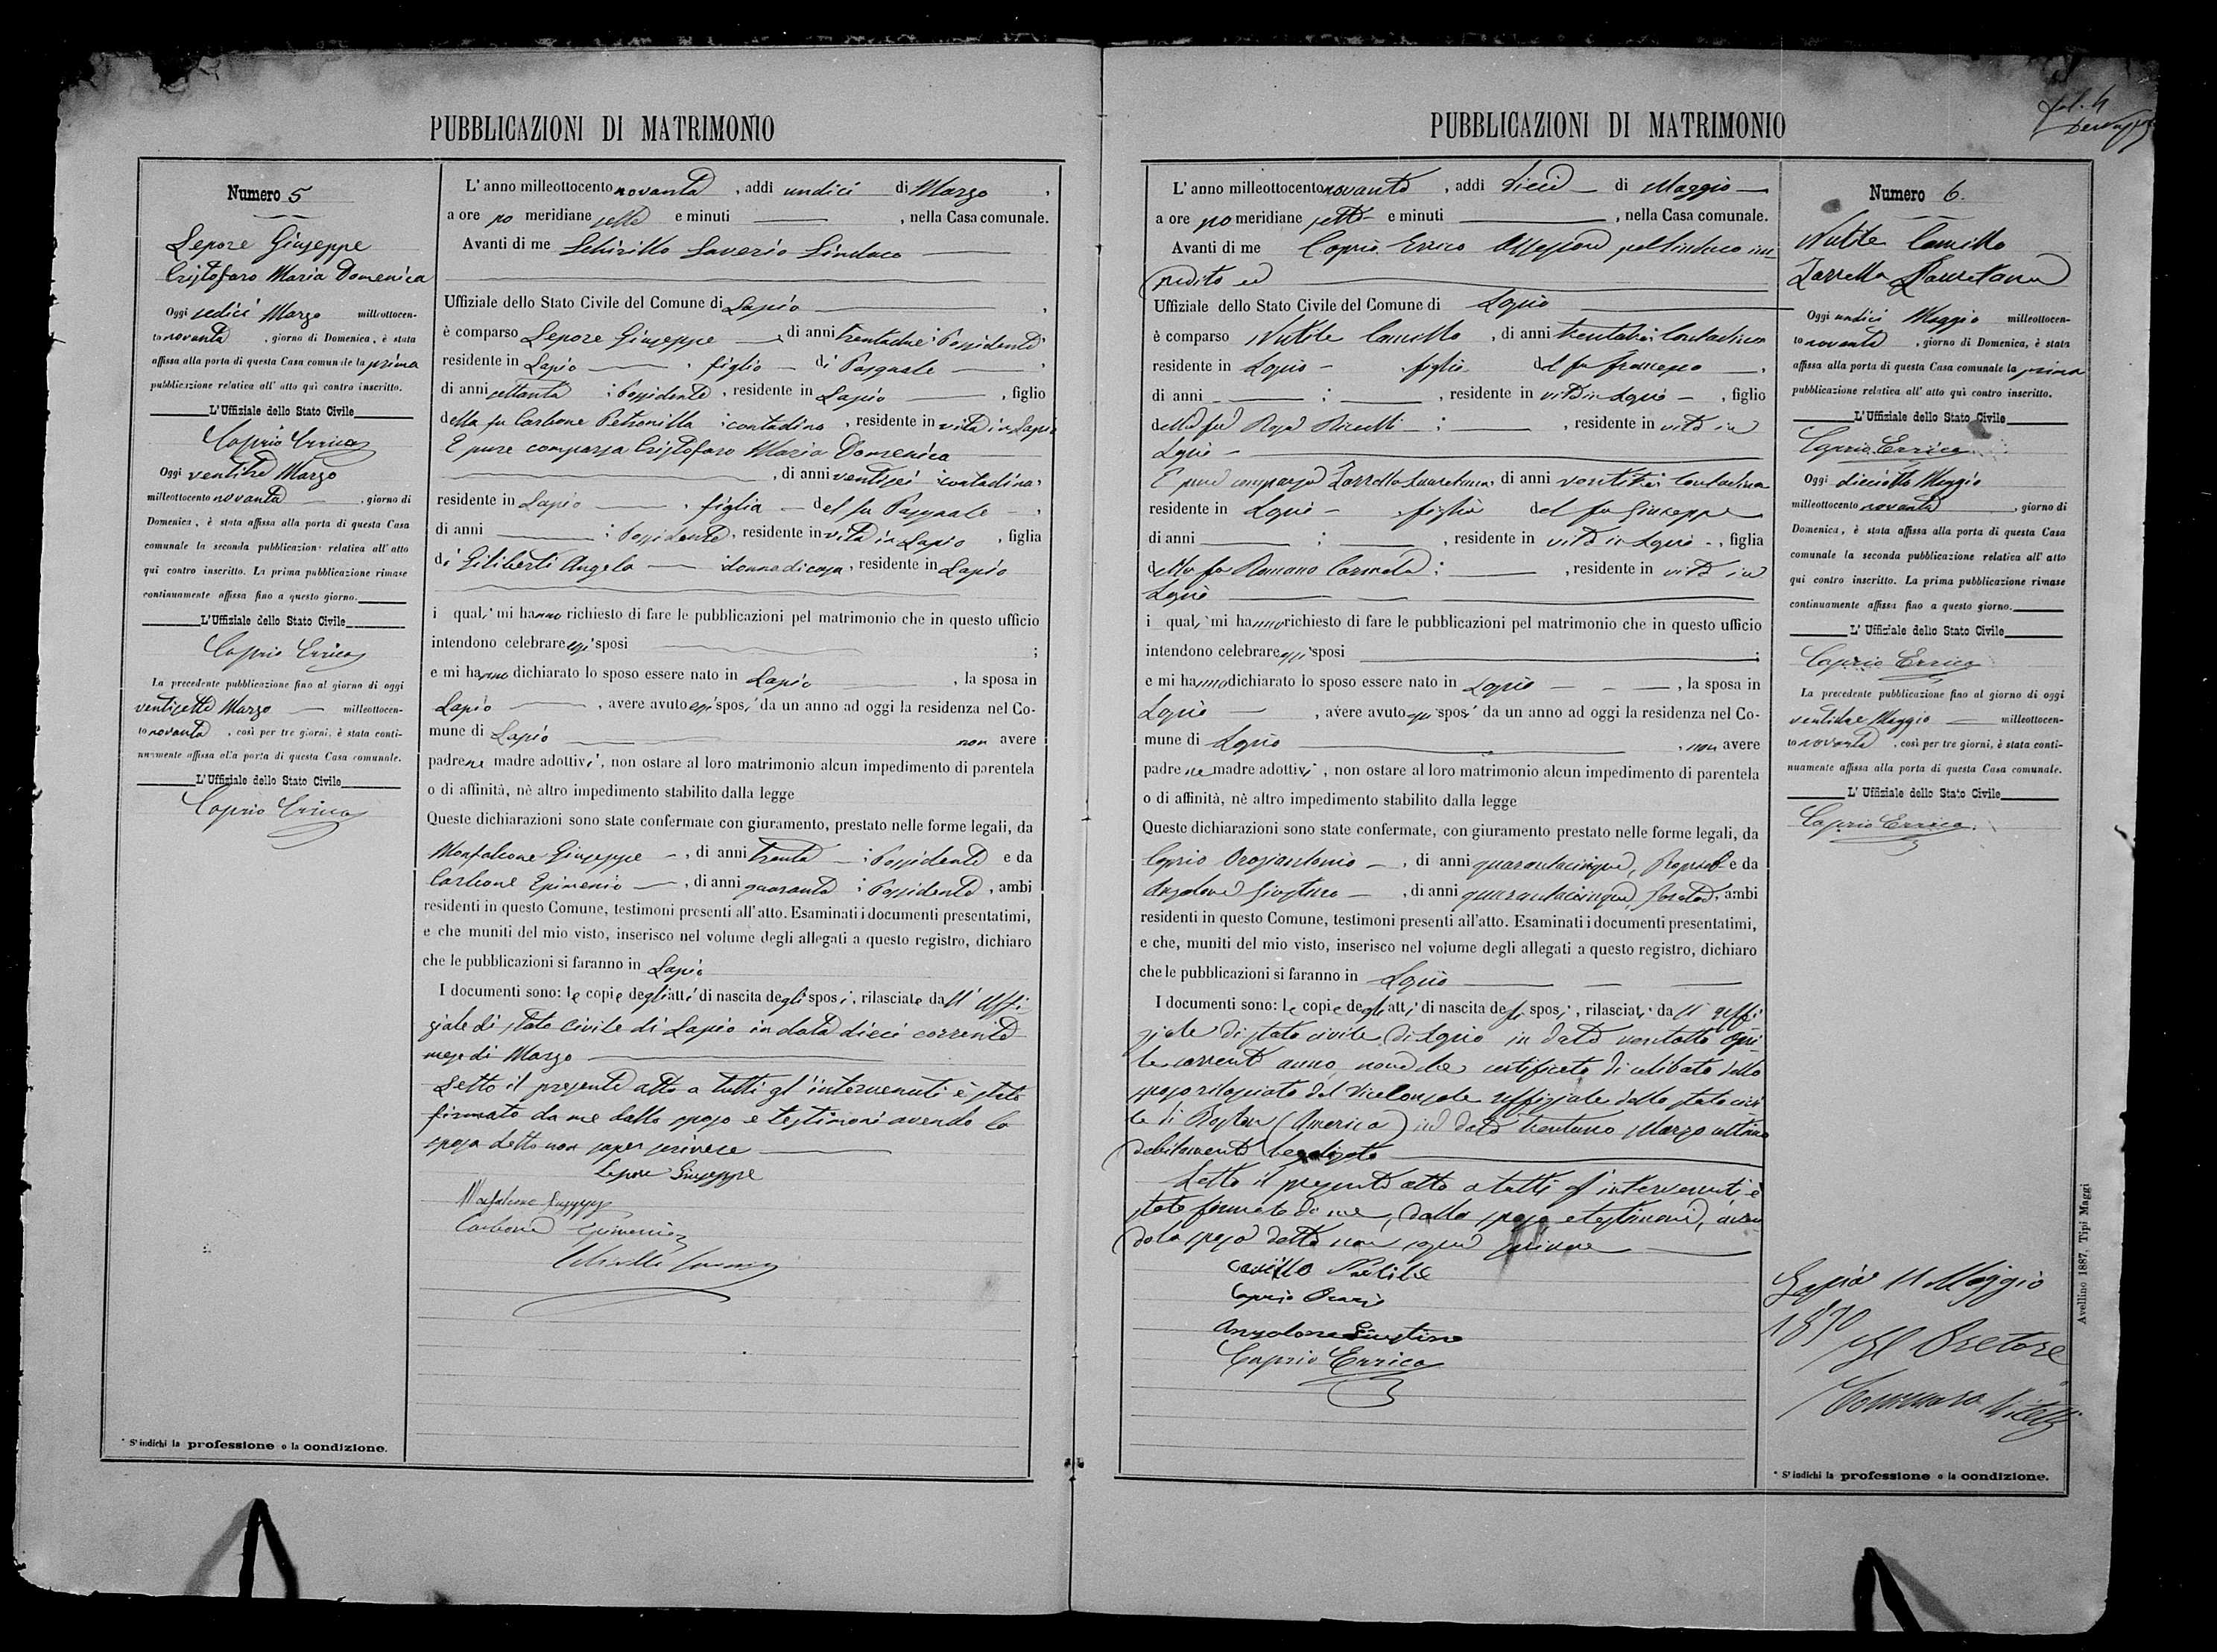 PUBBLICAZIONI DI MATRIMONIO
Numero 5
Lepore Giuseppe
Cristofaro Maria Domenica
Oggi sedici Marzo milleottocen-
to novanta, giorno di Domenica, è stata
affissa alla porta di questa Casa comunale la prima
pubblicazione relativa all' atto quì contro inscritto.
L'Uffiziale dello Stato Civile
Caprio Errico
Oggi ventitre Marzo
milleottocento novanta, giorno di
Domenica, è stata affissa alla porta di questa Casa
comunale la seconda pubblicazione relativa all' atto
qui contro inscritto. La prima pubblicazione rimase
continuamente affissa fino a questo giorno.
L'Uffiziale dello Stato Civile
Caprio Errico
La precedente pubblicazione fino al giorno di oggi
ventisette Marzo milleottocen-
to novanta, così per tre giorni, è stata conti-
nuamente affissa alla porta di questa Casa comunale.
L'Uffiziale dello Stato Civile
Caprio Errico
* S' indichi la professione o la condizione.
L' anno milleottocento novanta, addi undici di Marzo,
a ore po meridiane sette e minuti , nella Casa comunale.
Avanti di me Schirillo Saverio Sindaco
Uffiziale dello Stato Civile del Comune di Lapio,
è comparso Lepore Giuseppe, di anni trentadue; Possidente,
residente in Lapio, figlio di Pasquale,
di anni settanta; Possidente, residente in Lapio, figlio
della fu Carbone Petronilla; contadina, residente in vita in Lapio
È pure comparsa Cristofaro Maria Domenica
, di anni ventisei contadina,
residente in Lapio, figlia del fu Pasquale,
di anni ; Possidente, residente in vita in Lapio, figlia
di Giliberti Angela donna di casa, residente in Lapio
i quali mi hanno richiesto di fare le pubblicazioni pel matrimonio che in questo ufficio
intendono celebrare essi sposi ;
e mi hanno dichiarato lo sposo essere nato in Lapio, la sposa in
Lapio, avere avuto essi sposi da un anno ad oggi la residenza nel Co-
mune di Lapio non avere
padre ne madre adottivi, non ostare al loro matrimonio alcun impedimento di parentela
o di affinità, nè altro impedimento stabilito dalla legge
Queste dichiarazioni sono state confermate con giuramento, prestato nelle forme legali, da
Monfalcone Giuseppe, di anni trenta; Possidente e da
Carbone Epimenio, di anni quaranta; Possidente, ambi
residenti in questo Comune, testimoni presenti all' atto. Esaminati i documenti presentatimi,
e che muniti del mio visto, inserisco nel volume degli allegati a questo registro, dichiaro
che le pubblicazioni si faranno in Lapio
I documenti sono: le copie degli atti di nascita degli sposi, rilasciate dall' Uffi-
ziale di stato civile di Lapio in data dieci corrente
mese di Marzo
Letto il presente atto a tutti gl' intervenuti è stato
firmato da me dallo sposo e testimoni avendo la
sposa detto non saper scrivere
Lepore Giuseppe
Monfalcone Giuseppe
Carbone Epimenio
Schirillo Saverio
PUBBLICAZIONI DI MATRIMONIO
L' anno milleottocento novanta, addi dieci di Maggio
a ore po meridiane sette e minuti , nella Casa comunale.
Avanti di me Caprio Errico Assessore pel Sindaco im
pedito ed
Uffiziale dello Stato Civile del Comune di Lapio
è comparso Nutile Camillo, di anni trentatre; Contadino
residente in Lapio, figlio del fu Francesco,
di anni ; , residente in vita in Lapio, figlio
della fu Rosa Ricelli ; , residente in vita in
Lapio
È pure comparsa Zarrella Lauretana, di anni ventitre; Contadina
residente in Lapio, figlia del fu Giuseppe
di anni ; , residente in vita in Lapio, figlia
della fu Romano Carmela; , residente in vita in
Lapio
i quali mi hanno richiesto di fare le pubblicazioni pel matrimonio che in questo ufficio
intendono celebrare essi sposi ;
e mi hanno dichiarato lo sposo essere nato in Lapio, la sposa in
Lapio, avere avuto essi sposi da un anno ad oggi la residenza nel Co-
mune di Lapio, non avere
padre ne madre adottivi, non ostare al loro matrimonio alcun impedimento di parentela
o di affinità, nè altro impedimento stabilito dalla legge
Queste dichiarazioni sono state confermate, con giuramento prestato nelle forme legali, da
Caprio Oraziantonio, di anni quarantacinque, e da
Anzalone Giustino, di anni quarantacinque, ambi
residenti in questo Comune, testimoni presenti all'atto. Esaminati i documenti presentatimi,
e che, muniti del mio visto, inserisco nel volume degli allegati a questo registro, dichiaro
che le pubblicazioni si faranno in Lapio
I documenti sono: le copie degli atti di nascita degli sposi, rilasciati dall' uffi
ziale di stato civile di Lapio in data ventotto Apri
le corrente anno, nonche certificato di celibato dello
sposo rilasciato dal Viceconsole uffiziale dello stato civi
le di Boston (America) in data trentuno Marzo ultimo
debitamente legalizzato
Letto il presente atto a tutti gl' intervenuti è
stato firmato da me, dallo sposo e testimoni, aven
do la sposa detto non sapere scrivere
Camillo Nutile
Caprio Orazio
Anzalone Giustino
Caprio Errico
Numero 6.
Nutile Camillo
Zarrella Lauretana
Oggi undici Maggio milleottocen-
to novanta, giorno di Domenica, è stata
affissa alla porta di questa Casa comunale la prima
pubblicazione relativa all' atto quì contro inscritto.
L'Uffiziale dello Stato Civile
Caprio Errico
Oggi dieciotto Maggio
milleottocento novanta, giorno di
Domenica, è stata affissa alla porta di questa Casa
comunale la seconda pubblicazione relativa all' atto
qui contro inscritto. La prima pubblicazione rimase
continuamente affissa fino a questo giorno.
L' Uffiziale dello Stato Civile
Caprio Errico
La precedente pubblicazione fino al giorno di oggi
ventidue Maggio milleottocen-
to novanta, così per tre giorni, è stata conti-
nuamente affissa alla porta di questa Casa comunale.
L' Uffiziale dello Stato Civile
Caprio Errico
Lapio 11 Maggio
1890
Il Pretore
Avellino 1887, Tipi Maggi
* S' indichi la professione o la condizione.